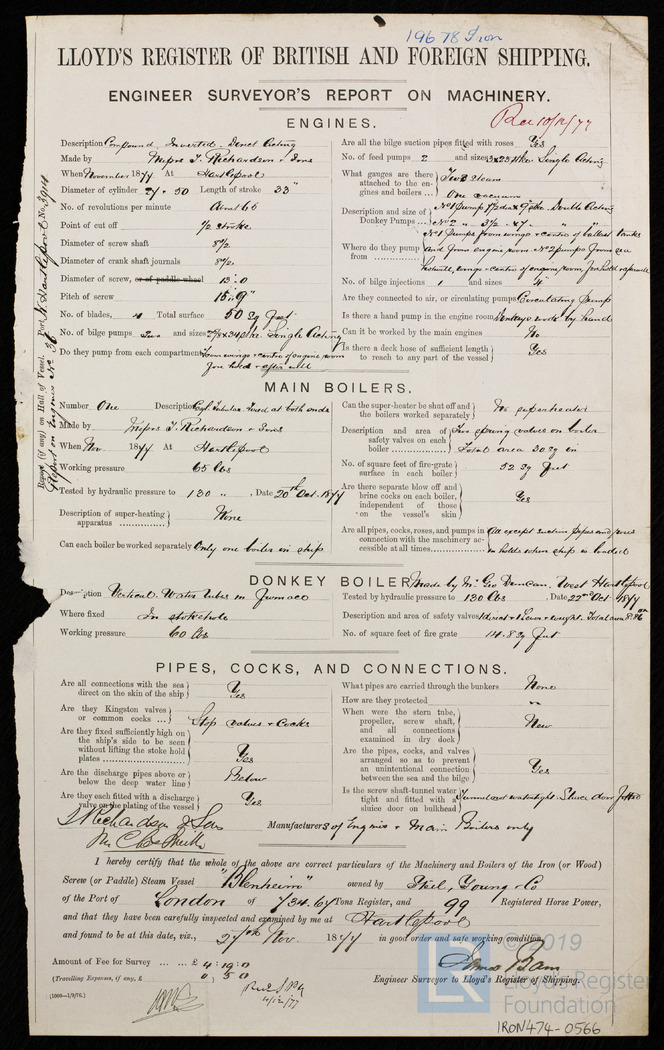 19678 Iron
LLOYD'S REGISTER OF BRITISH AND FOREIGN SHIPPING.
ENGINEER SURVEYOR'S REPORT ON MACHINERY.
Rec 10/12/77
ENGINES.
Description Compound Inverted Direct Acting
Made by Messrs T. Richardson & Sons
When November 1877 At Hartlepool
Diameter of cylinder 27 & 50 Length of stroke 33"
No. of revolutions per minute About 65
Point of cut off 1/2 stroke
Diameter of screw shaft 8 1/2
Diameter of crank shaft journals 8 1/2
Diameter of screw, or of paddle wheel 13.0
Pitch of screw 15.9"
No. of blades, 4 Total surface 50 sq feet
No. of bilge pumps two and sizes Single Acting
Do they pump from each compartment From wings & centre of engine room
fore hold & after well
Are all the bilge suction pipes fitted with roses Yes
No. of feed pumps 2 and sizes Single Acting
What gauges are there attached to the engines and boilers ... Two Steam
One vacuum
Description and size of Donkey Pumps ... No 1 Pump Double Acting
No 2 " 3 1/2 x 7 " "
Where do they pump from No 1 Pumps from wings & centre of ballast tanks
and from engine room No 2 pumps from sea
hotwell, wings & centre of engine room, fore hold & after well
No. of bilge injections 1 and sizes 4
Are they connected to air, or circulating pumps Circulating Pump
Is there a hand pump in the engine room Donkeys work by hand
Can it be worked by the main engines No
Is there a deck hose of sufficient length to reach to any part of the vessel Yes
Report (if any) on Hull of Vessel. Port, W. Hartlepool No.
Report on Engines No. 36
MAIN BOILERS.
Number One Description Cyl. Tubular fired at both ends
Made by Messrs T. Richardson & Sons
When Nov. 1877 At Hartlepool
Working pressure 65 lbs
Tested by hydraulic pressure to 130 " , Date 20th Oct. 1877
Description of super-heating apparatus None
Can each boiler be worked separately Only one boiler in ship
Can the super-heater be shut off and the boilers worked separately No superheater
Description and area of safety valves on each boiler Two spring valves on boiler
Total area 30 sq in
No. of square feet of fire-grate surface in each boiler 52 sq feet
Are there separate blow off and brine cocks on each boiler, independent of those on the vessel's skin Yes
Are all pipes, cocks, roses, and pumps in connection with the machinery accessible at all times All except suction pipes and roses
in holds when ship is loaded
DONKEY BOILER Made by Mr Geo Duncan, West Hartlepool
Description Vertical. Water tubes in furnace
Where fixed In stokehole
Working pressure 60 lbs
Tested by hydraulic pressure to 130 lbs , Date 22nd Oct. 1877
Description and area of safety valves 1 direct & lever & weight. Total area
No. of square feet of fire grate 14.8 sq feet
PIPES, COCKS, AND CONNECTIONS.
Are all connections with the sea direct on the skin of the ship Yes
Are they Kingston valves or common cocks ... Stop valves & Cocks
Are they fixed sufficiently high on the ship's side to be seen without lifting the stoke hold plates Yes
Are the discharge pipes above or below the deep water line Below
Are they each fitted with a discharge valve on the plating of the vessel Yes
What pipes are carried through the bunkers None
How are they protected "
When were the stern tube, propeller, screw shaft, and all connections examined in dry dock New
Are the pipes, cocks, and valves arranged so as to prevent an unintentional connection between the sea and the bilge Yes
Is the screw shaft-tunnel water tight and fitted with a sluice door or bulkhead Tunnel and watertight. Sluice door fitted
T Richardson & Sons Manufacturers of Engines & Main Boilers only
I hereby certify that the whole of the above are correct particulars of the Machinery and Boilers of the Iron (or Wood)
Screw (or Paddle) Steam Vessel "Blenheim" owned by Young & Co
of the Port of London of 734.67 Tons Register, and 99 Registered Horse Power,
and that they have been carefully inspected and examined by me at Hartlepool
and found to be at this date, viz., 27th Nov. 1877 in good order and safe working condition.
Amount of Fee for Survey ... ... £ 4:19:0
(Travelling Expenses, if any, £ 0 5 0
Engineer Surveyor to Lloyd's Register of Shipping.
(1000—1/9/76.)
4/12/77
© 2019
LR
Lloyd's Register
Foundation
IRON474-0566